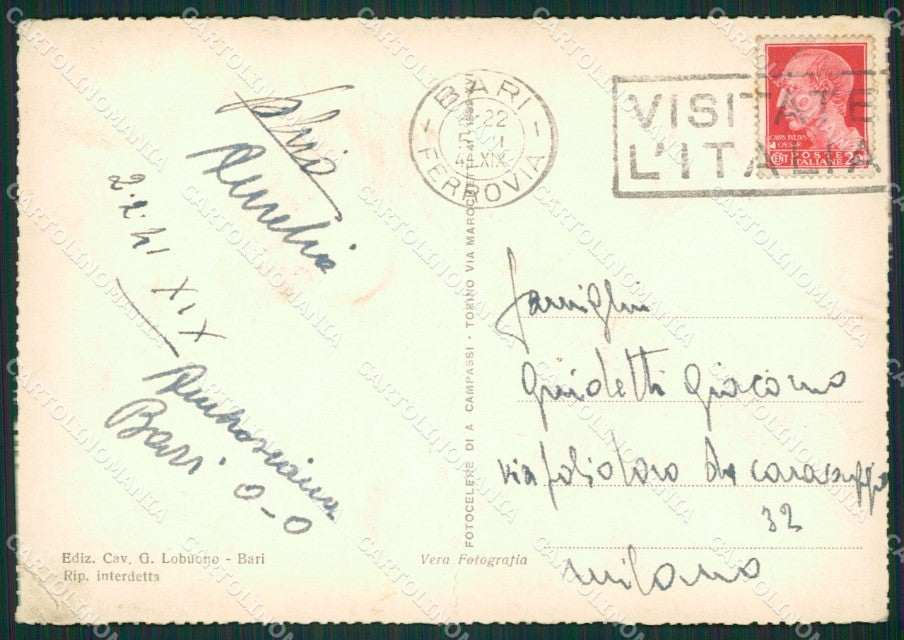 BARI
22
1
41 XIX
FERROVIA
VISITATE
L'ITALIA
CAIVS IVLIVS
CAESAR
POSTE
CENT ITALIANE 25
Aurelia
2.2.41 XIX
Bari
0-0
Famiglia
Guidetti Giacomo
via Polidoro da Caravaggio
32
Milano
FOTOCELERE DI A CAMPASSI - TORINO VIA
Ediz. Cav. G. Lobuono - Bari
Rip. interdetta
Vera Fotografia
CARTOLINOMANIA